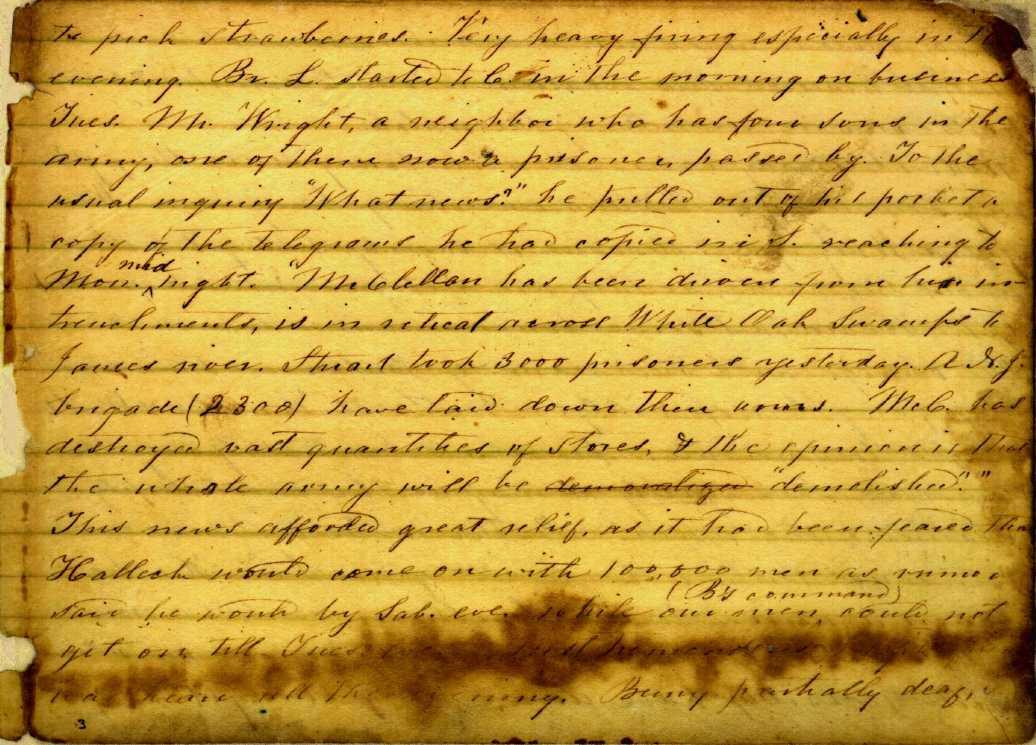 to pick strawberries. Very heavy firing especially in
evening. Br. L. started to C. in the morning on business
Tues. Mr. Wright, a neighbor who has four sons in the
army, one of them now a prisoner, passed by. To the
usual inquiry "What news?" he pulled out of his pocket a
copy of the telegrams he had copied in S. reaching to
Mon. midnight. "McClellan has been driven from his in-
trenchments, is in retreat across White Oak Swamps to
James river. Stuart took 3000 prisoners yesterday. A N.J.
brigade (2300) have laid down their arms. McC. has
destroyed vast quantities of stores, & the opinion is that
the whole army will be demoralized "demolished"."
This news afforded great relief, as it had been feared tha
Halleck would come on with 100,000 men as rumor
(B's command)
said he would by Sab. eve. while our men, could not
get on till Tues.
all the. Being partially deaf,
3